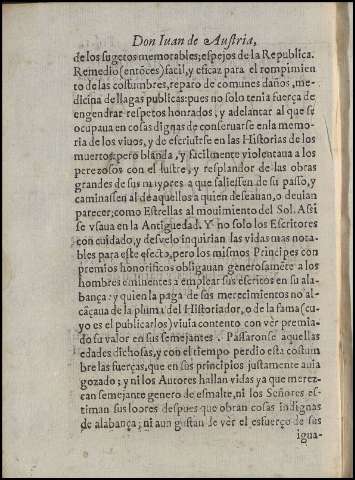 Don Iuan de Austria,
de los sugetos memorables; espejos de la Republica.
Remedio (entõces) facil, y eficaz para el rompimien
to de las costumbres, reparo de comunes daños, me-
dicina de llagas publicas: pues no solo tenia fuerça de
engendrar respetos honrados, y adelantar al que se
ocupaua en cosas dignas de conseruarse en la memo-
ria de los viuos, y de escriuirse en las Historias de los
muertos; pero blanda, y facilmente violentaua a los
perezosos con el lustre, y resplandor de las obras
grandes de sus mayores a que saliessen de su passo, y
caminassen al de aquellos a quien deseauan, o deuian
parecer; como Estrellas al mouimiento del Sol. Assi
se vsaua en la Antiguedad. Y no solo los Escritores
con cuidado, y desvelo inquirian las vidas mas nota-
bles para este efecto, pero los mismos Principes con
premios honorificos obligauan generosamẽte a los
hombres eminentes a emplear sus escritos en su ala-
bança: y quien la paga de sus merecimientos no al-
cãçaua de la pluma del Historiador, o de la fama (cu-
yo es el publicarlos) viuia contento con vèr premia-
do su valor en sus semejantes. Passaronse aquellas
edades dichosas, y con el tiempo perdio esta costum
bre las fuerças, que en sus principios justamente auia
gozado; y ni los Autores hallan vidas ya que merez-
can semejante genero de esmalte, ni los Señores es-
timan sus loores despues que obran cosas indignas
de alabança; ni aun gustan de vèr el esfuerço de sus
igua-